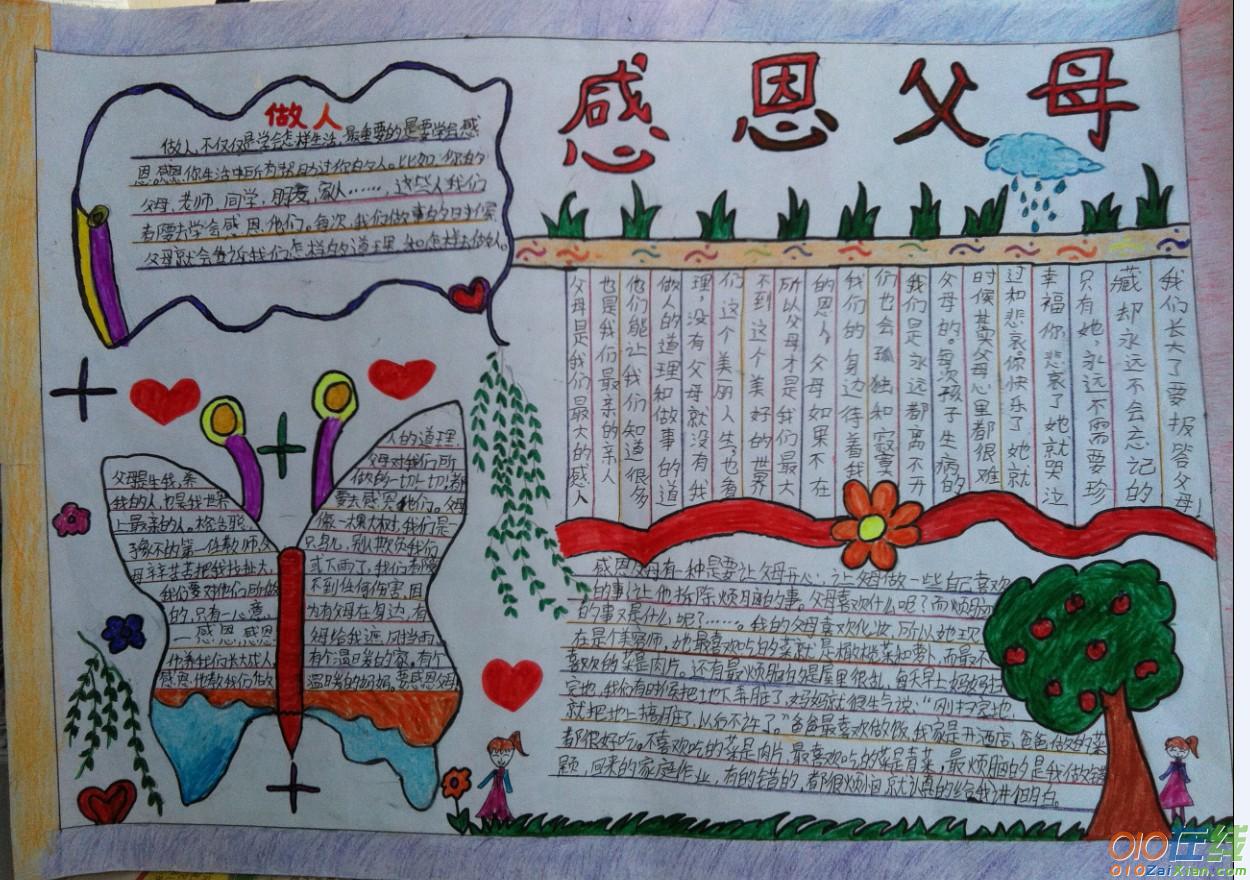 感恩父母
做人
做人,不仅仅是学会怎样生活,最重要的是要学会感
恩。感恩你生活中所有帮助过你的人。比如,你的
父母,老师,同学,朋友,家人……,这些人我们
都要去学会感恩他们。每次,我们做事的时候
父母就会告诉我们怎样的道理,和怎样去做人。
父母是我们最大的感人
也是我们最亲的亲人
他们能让我们知道很多
做人的道理和做事的道
理,没有父母就没有我
们这个美丽人生,也看
不到这个美好的世界
所以父母才是我们最大
的恩人。父母如果不在
我们的身边待着我
们也会孤独和寂寞
我们是永远都离不开
父母的。每次孩子生病的
时候其实父母心里都很难
过和悲哀。你快乐了她就
幸福你,悲哀了她就哭泣
只有她,永远不需要珍
藏却永远不会忘记的
我们长大了要报答父母!
父母是生我,养
我的人,也是我世界
上最亲的人。
的第一位教师,父
母辛辛苦苦把我拉扯大,
我们要对他们所做
的,只有一心意
—感恩 感恩
他养我们长大成人,
感恩,他教我们做
人的道理,
父母对我们所
做的一切一切!都
要去感恩他们。父母
像一棵大树,我们是一
只鸟儿,别人欺负我们
或下雨了,我们都
不到任何伤害,因
为有父母在身边,有
给我遮风挡雨,
有个温暖的家。有个
温暖的妈妈。要感恩父母
感恩父母有一种是要让父母开心,让父母做一些自己喜欢
的事,让他拆除烦脑的事。父母喜欢什么呢?而烦脑
的事又是什么呢?……。我的父母喜欢化妆,所以她现
在是个美容师,她最喜欢吃的菜就是橄榄菜和萝卜,而最不
喜欢的菜是肉片。还有最烦脑的是屋里很乱,每天早上妈妈扫
完地,我们有时候把地下弄脏了,妈妈就很生气说:“刚扫完地,
就把地上搞脏了,以后不许了。”爸爸最喜欢做饭,我家是开酒店,爸爸做的菜
都很好吃。不喜欢吃的菜是肉片,最喜欢吃的菜是青菜,最烦脑的是我做错
题,回来的家庭作业,有的错的,都很烦恼就认真的给我讲明白。
010在线
010ZaiXian.com